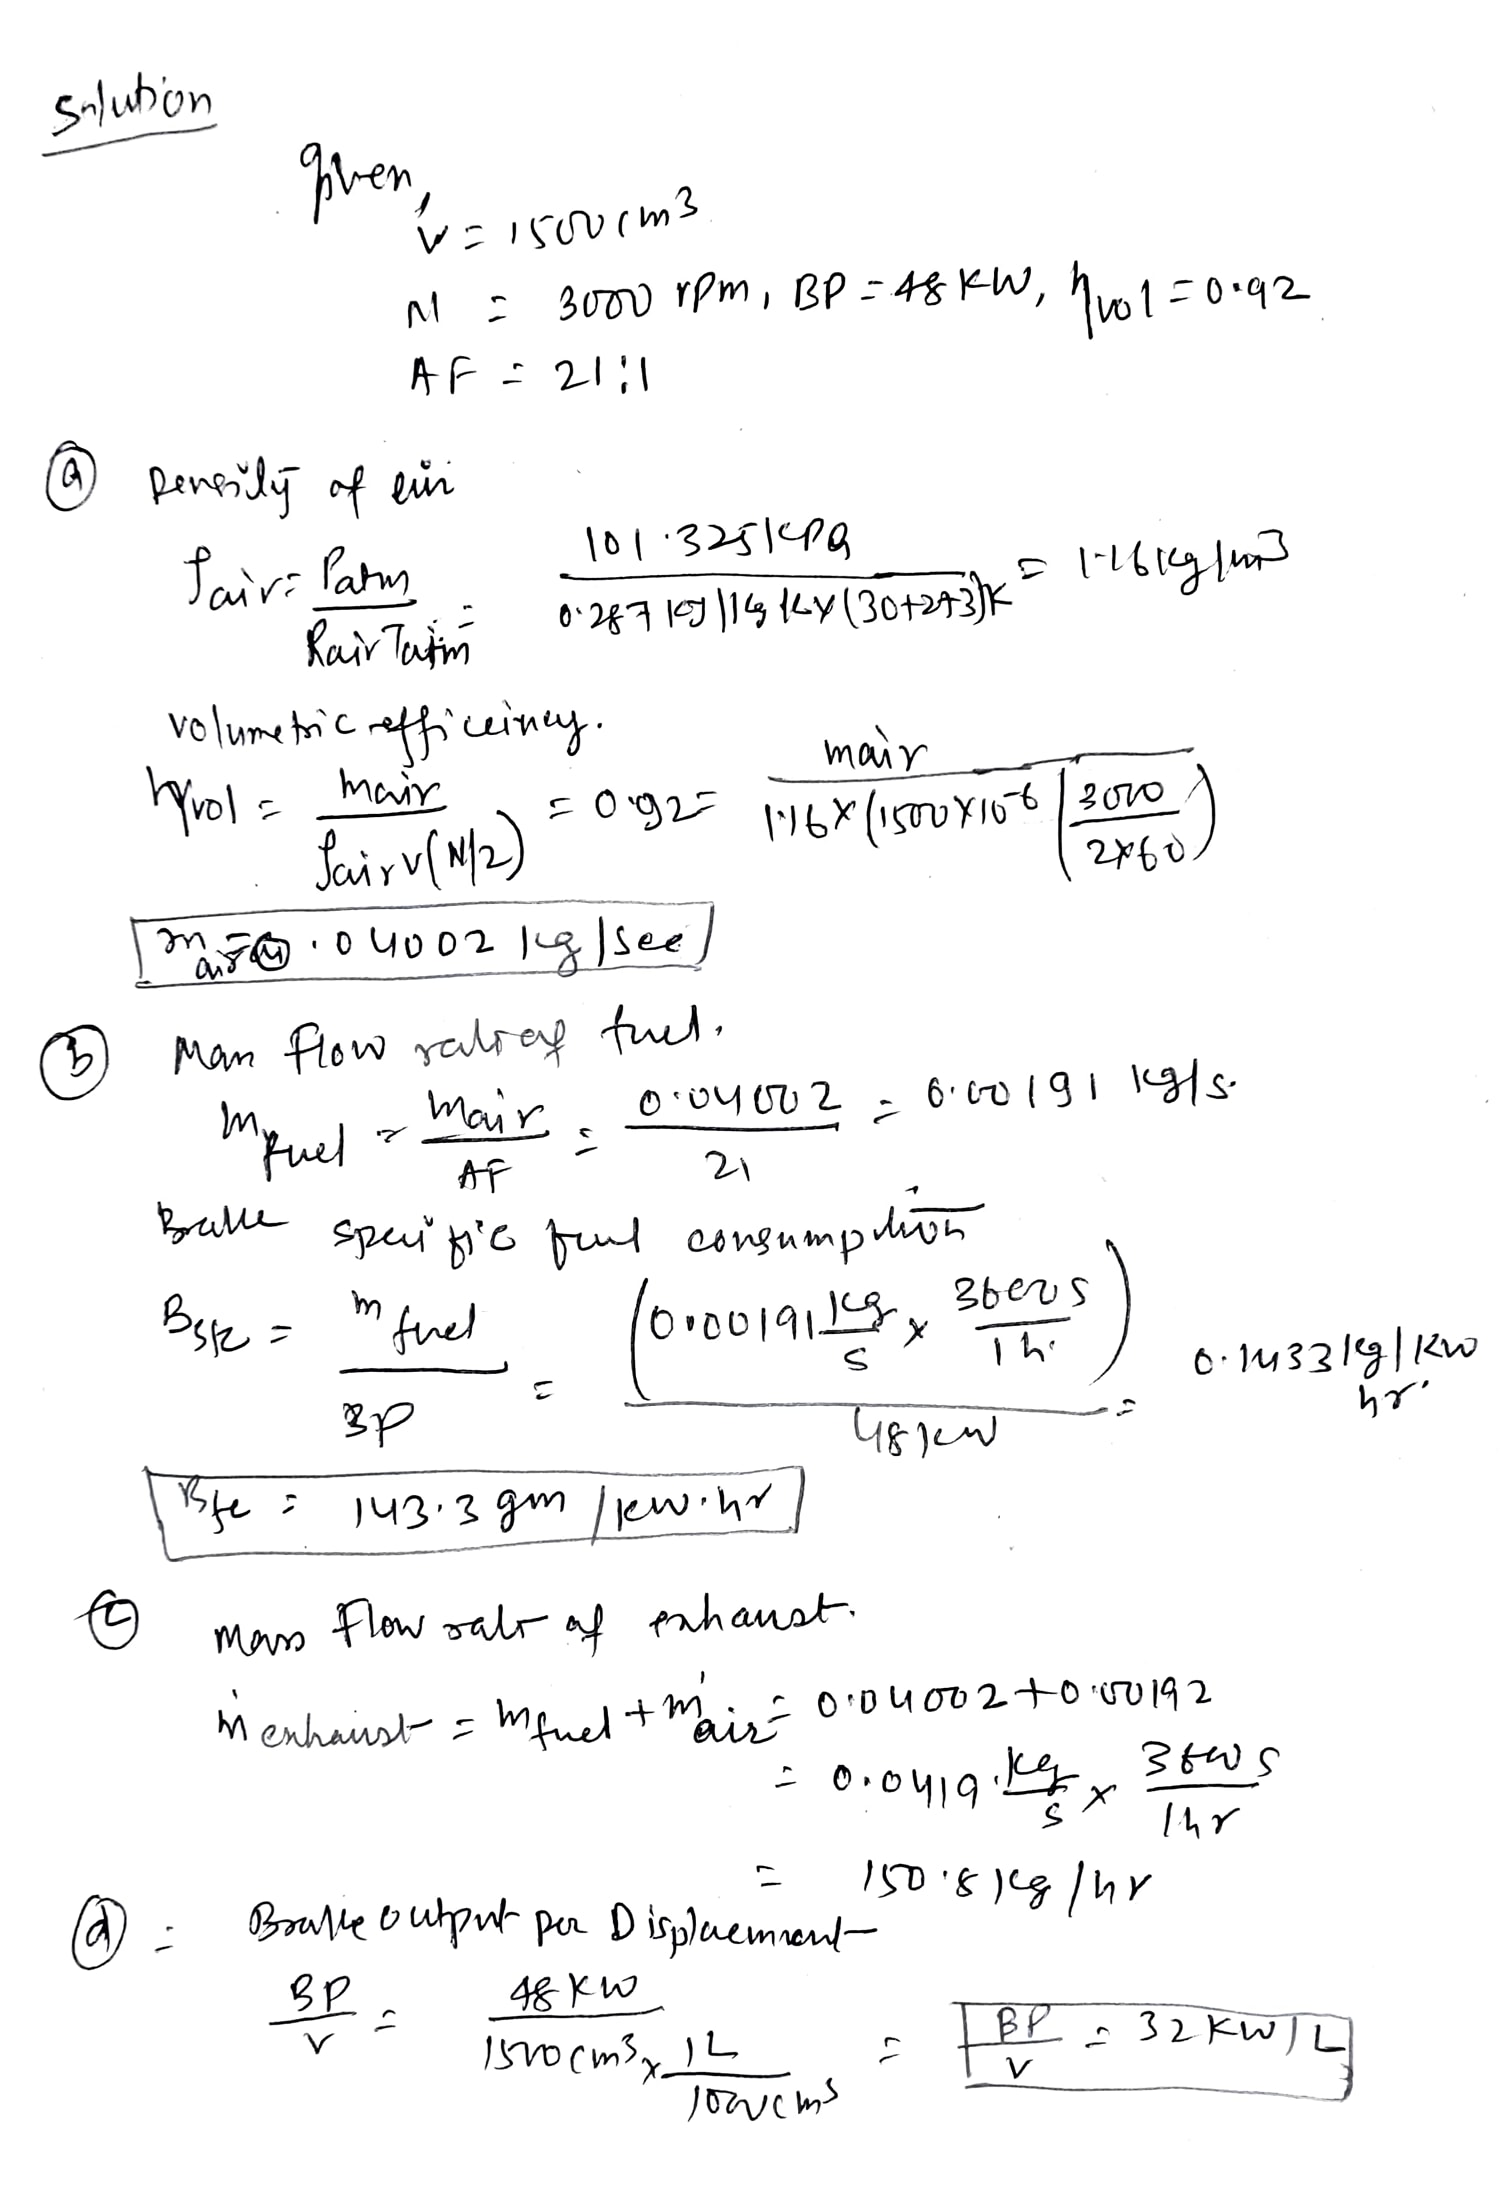 Solution
Given,
V = 1500 cm3
N = 3000 rpm, BP = 48 KW, ηvol = 0.92
AF = 21:1
(a) Density of air
ρair = Patm / Rair Tatm = 101.325 kPa / 0.287 KJ/kg K × (30+273)K = 1.16 kg/m3
volumetric efficeincy.
ηvol = mair / ρair V(N/2) = 0.92 = mair / 1.16 × (1500×10-6 (3000 / 2×60)
mair = 0.04002 kg/sec
(b) Mass flow rate of fuel.
mfuel = mair / AF = 0.04002 / 21 = 0.00191 kg/s.
Brake specific fuel consumption
Bsfc = mfuel / BP = (0.00191 kg/s × 3600 s / 1 h.) / 48 kW = 0.1433 kg/KW hr.
Bfc = 143.3 gm/kw.hr
(c) mass flow rate of exhaust.
ṁ exhaust = mfuel + ṁair = 0.04002 + 0.00192
= 0.0419 kg/s × 3600 s / 1hr
= 150.8 kg/hr
(d) = Brake output per Displacement
BP / V = 48 KW / 1500 cm3 × 1L / 1000 cm3 = BP / V = 32 KW/L